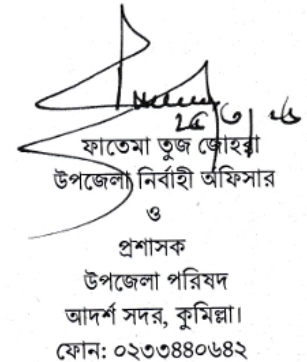 ফাতেমা তুজ জোহরা
উপজেলা নির্বাহী অফিসার
ও
প্রশাসক
উপজেলা পরিষদ
আদর্শ সদর, কুমিল্লা।
ফোন: ০২৩৩৪৪০৬৪২